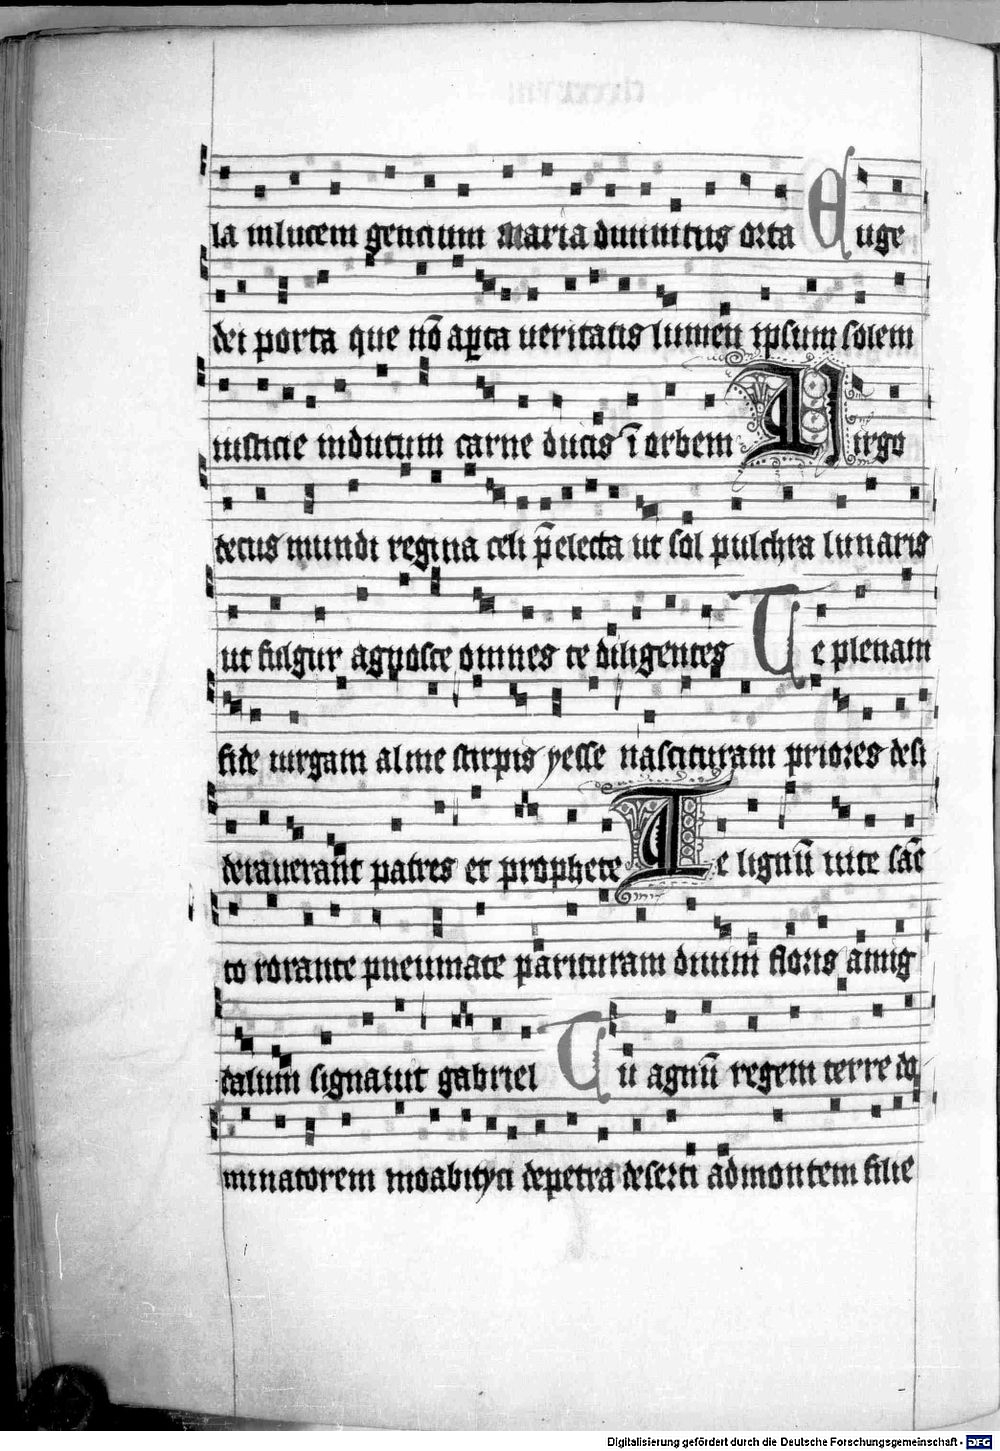 la in lucem gencium maria divinitus orta Euge
dei porta que nō apta veritatis lumen ipsum solem
iusticie indutum carne ducis ī orbem Virgo
decus mundi regina celi p̄electa ut sol pulchra lunaris
ut fulgur agnoste omnes te diligentes Te plenam
fide virgam alme stirpis yesse nascituram priores desi
deraverant patres et prophete Te lignū vite sāc
to rorante pneumate parituram divini floris amig
dalum signavit gabriel Tu agnū regem terre do
minatorem moabityci de petra deserti ad montem filie
Digitalisierung gefördert durch die Deutsche Forschungsgemeinschaft - DFG